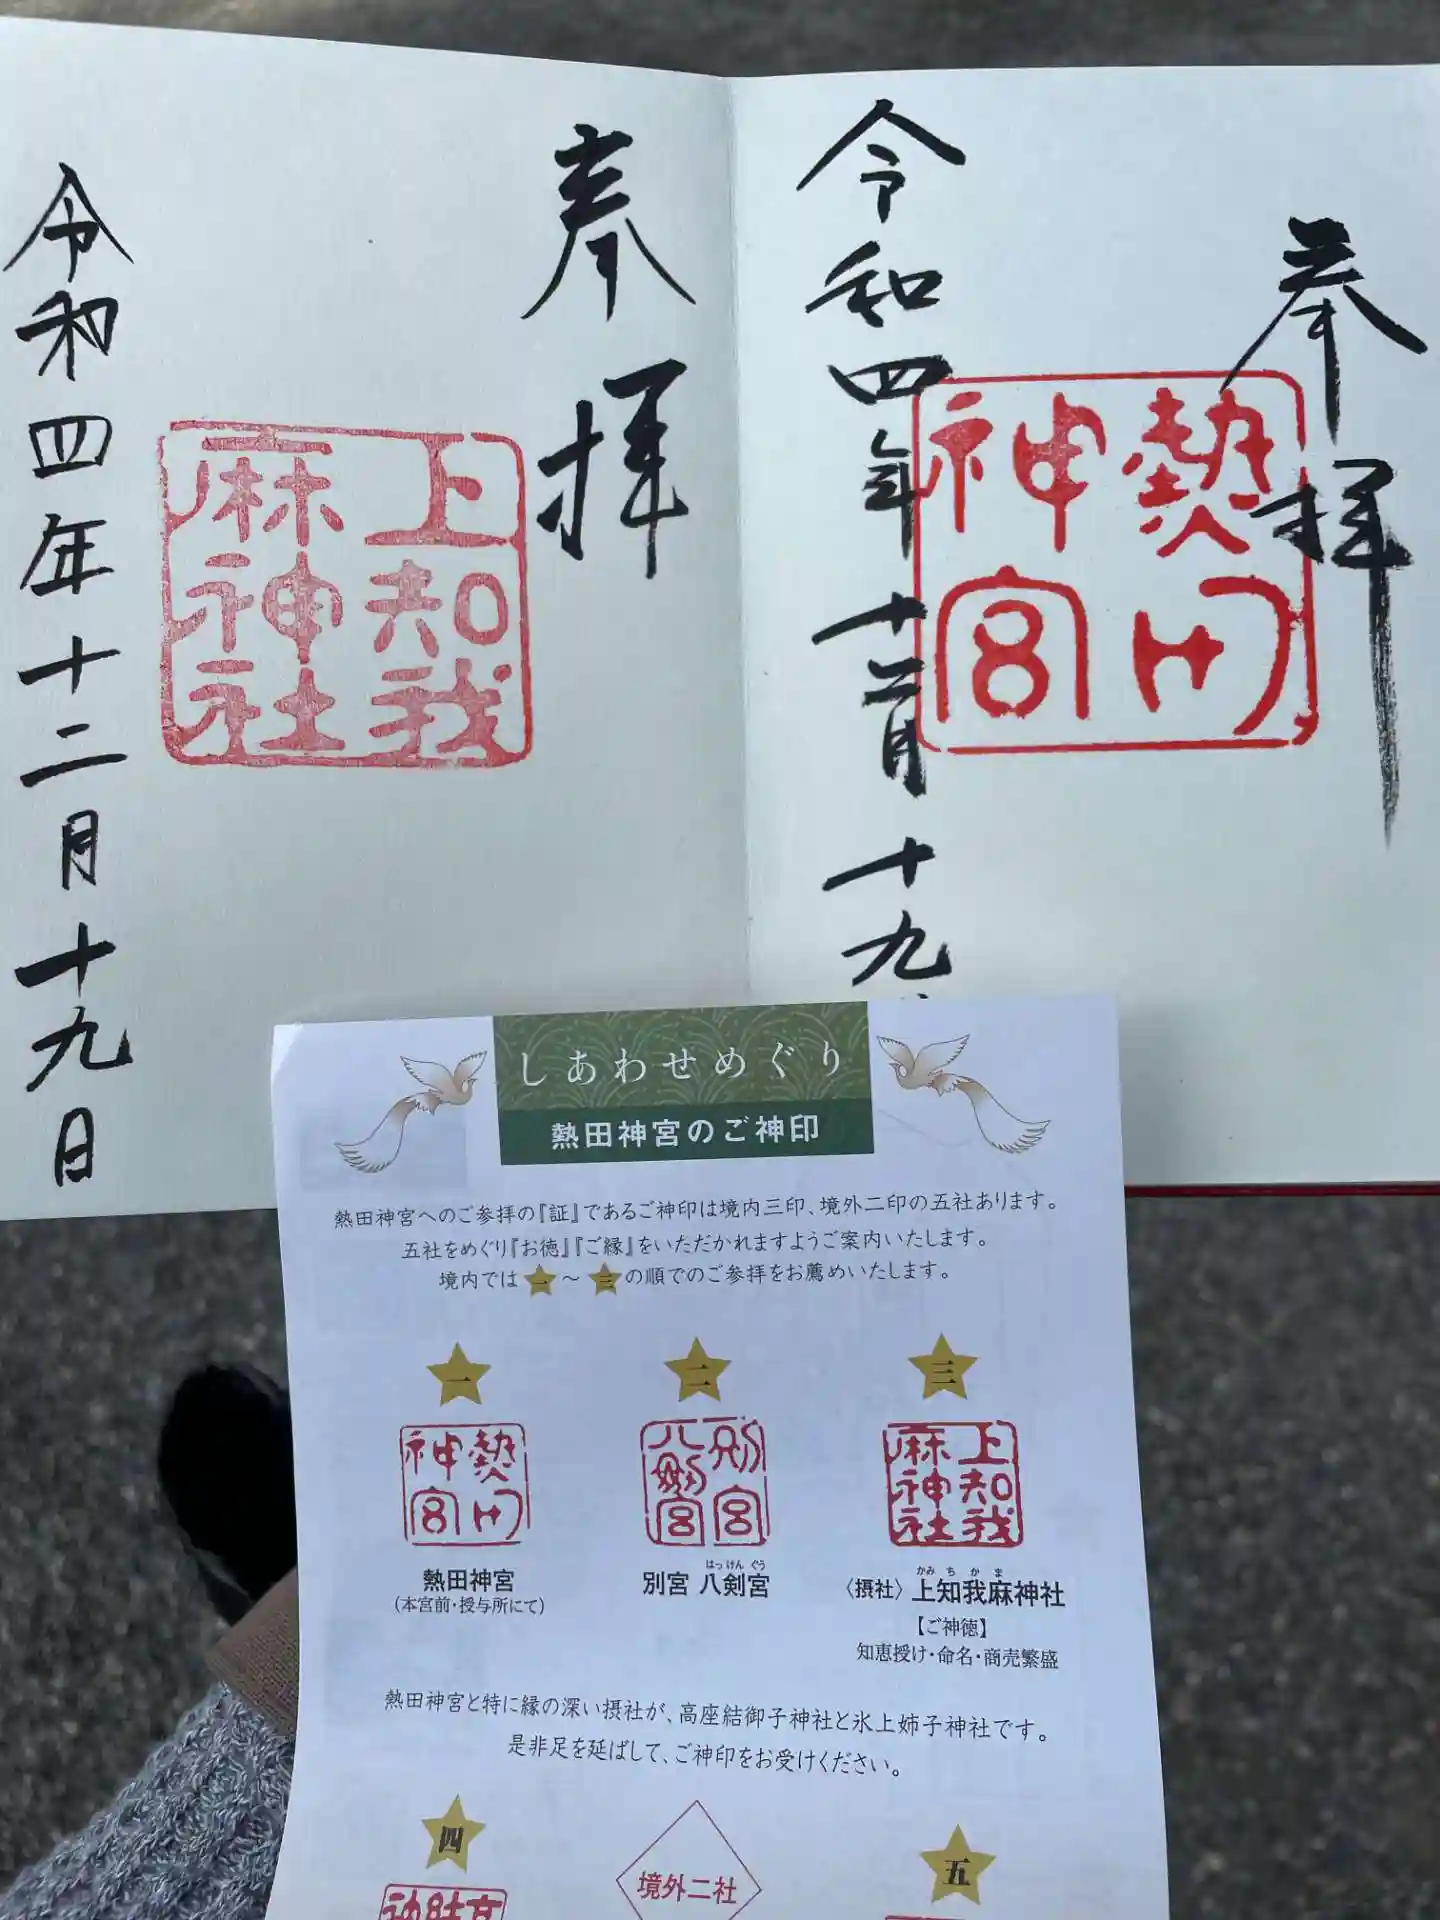 奉拝
熱田
神宮
令和四年十二月十九
奉拝
上知我
麻神社
令和四年十二月十九日
しあわせめぐり
熱田神宮のご神印
熱田神宮へのご参拝の『証』であるご神印は境内三印、境外二印の五社あります。
五社をめぐり『お徳』『ご縁』をいただかれますようご案内いたします。
境内では一～三の順でのご参拝をお薦めいたします。
一
熱田
神宮
熱田神宮
（本宮前・授与所にて）
二
別宮
八剣宮
はっけんぐう
別宮 八剣宮
三
上知我
麻神社
かみちかま
〈摂社〉上知我麻神社
【ご神徳】
知恵授け・命名・商売繁盛
熱田神宮と特に縁の深い摂社が、高座結御子神社と氷上姉子神社です。
是非足を延ばして、ご神印をお受けください。
四
境外二社
五